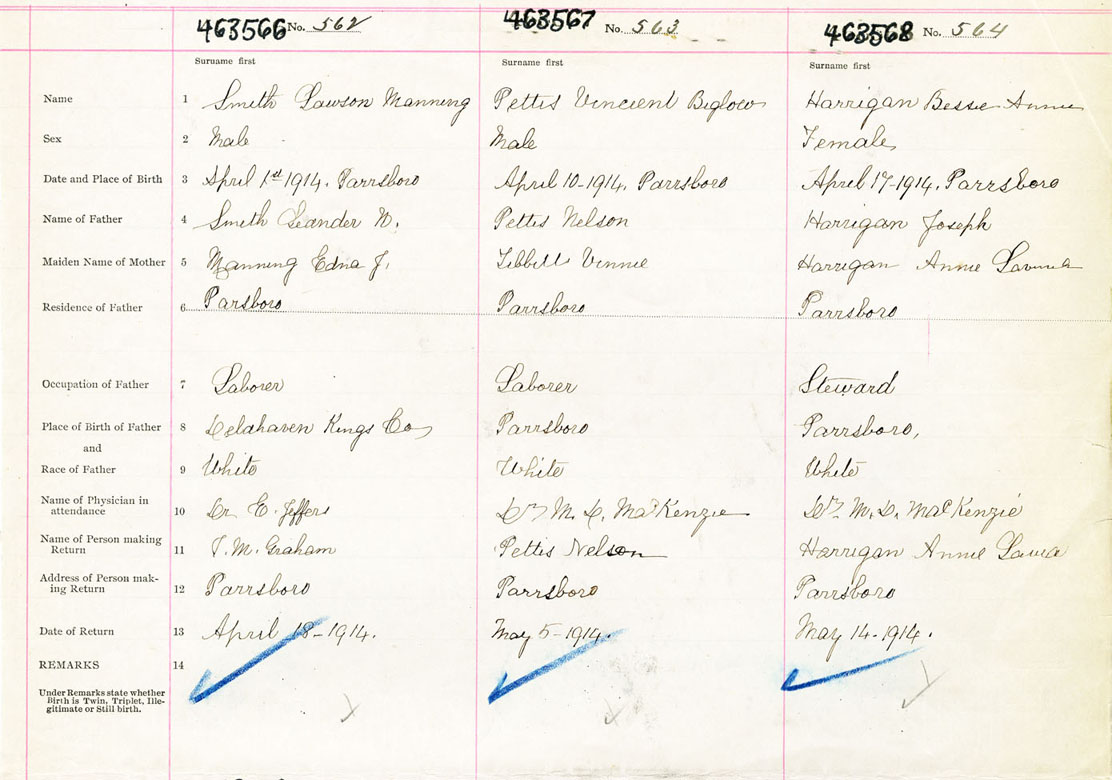 463566 No. 562 463567 No. 563 463568 No. 564
Surname first Surname first Surname first
Name 1 Smith Lawson Manning Pettis Vincient Biglow Harrigan Bessie Annie
Sex 2 Male Male Female
Date and Place of Birth 3 April 1st 1914. Parrsboro April 10-1914. Parrsboro April 17-1914. Parrsboro
Name of Father 4 Smith Leander Pettis Nelson Harrigan Joseph
Maiden Name of Mother 5 Manning Edna J. Vinnie Harrigan Annie
Residence of Father 6 Parsboro Parrsboro Parrsboro
Occupation of Father 7 Laborer Laborer Steward
Place of Birth of Father 8 Delahaven Kings Co Parrsboro Parrsboro,
and
Race of Father 9 White White White
Name of Physician in
attendance 10 Dr. E. Jeffers Dr. M. D. MacKenzie Dr. M. D. MacKenzie
Name of Person making
Return 11 T. M. Graham Pettis Nelson Harrigan Annie
Address of Person mak-
ing Return 12 Parrsboro Parrsboro Parrsboro
Date of Return 13 April 18-1914. May 5-1914. May 14-1914.
REMARKS 14
Under Remarks state whether
Birth is Twin, Triplet, Ille-
gitimate or Still birth.